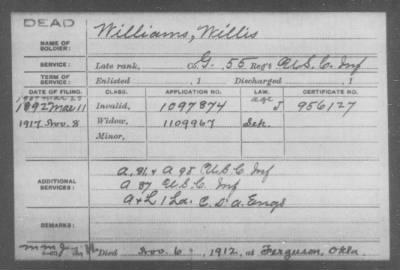 DEAD
NAME OF SOLDIER: Williams, Willis
SERVICE: Late rank, Co. G. 55 Reg't U.S.C. Inf
TERM OF SERVICE: Enlisted , 1 Discharged , 1
DATE OF FILING. CLASS. APPLICATION NO. LAW. CERTIFICATE NO.
1892 Mar 11 Invalid, 1097874 age J 956127
1917. Nov. 8 Widow, 1109967
Minor,
ADDITIONAL SERVICES: A. 81 & A 98 U.S.C. Inf
A 87 U.S.C. Inf
A & L 1 La. C.D.A. Engs
REMARKS:
Died Nov. 6, 1912, at Ferguson, Okla.